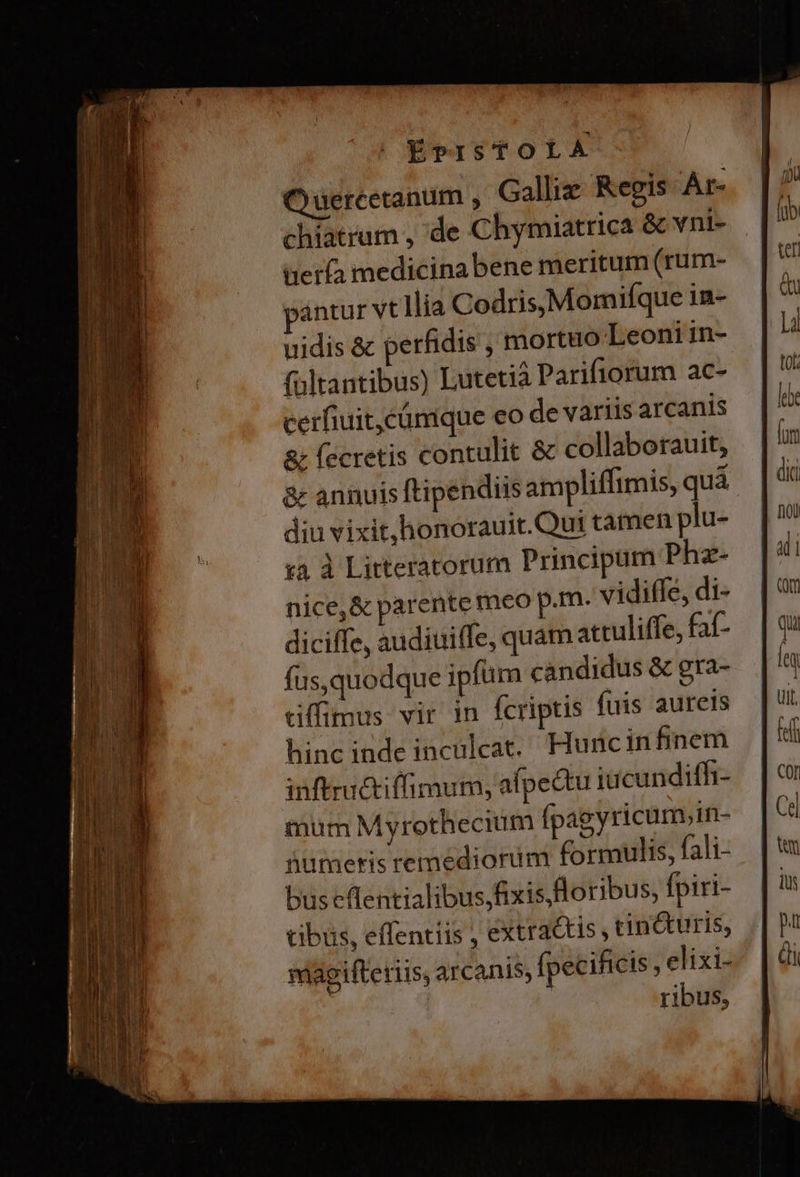 EPISTOLA
Quercetanum, Galliæ Regis Ar-
chiatrum, de Chymiatrica & vni-
uerſa medicina bene meritum (rum-
pantur vt Ilia Codris, Momiſque in-
uidis & perfidis, mortuo Leoni in-
ſultantibus) Lutetiâ Pariſiorum ac-
cerſiuit, cúmque eo de variis arcanis
& ſecretis contulit & collaborauit,
& annuis ſtipendiis ampliſſimis, quâ
diu vixit, honorauit. Qui tamen plu-
ra à Litteratorum Principum Phæ-
nice, & parente meo p.m. vidiſſe, di-
diciſſe, audiuiſſe, quàm attuliſſe, faſ-
ſus, quodque ipſum candidus & gra-
tiſſimus vir in ſcriptis ſuis aureis
hinc inde inculcat. Hunc in finem
inſtructiſſimum, aſpectu iucundiſſi-
mum Myrothecium ſpagyricum, in-
numeris remediorum formulis, ſali-
bus eſſentialibus, fixis, floribus, ſpiri-
tibus, eſſentiis, extractis, tincturis,
magiſteriis, arcanis, ſpecificis, elixi-
ribus,